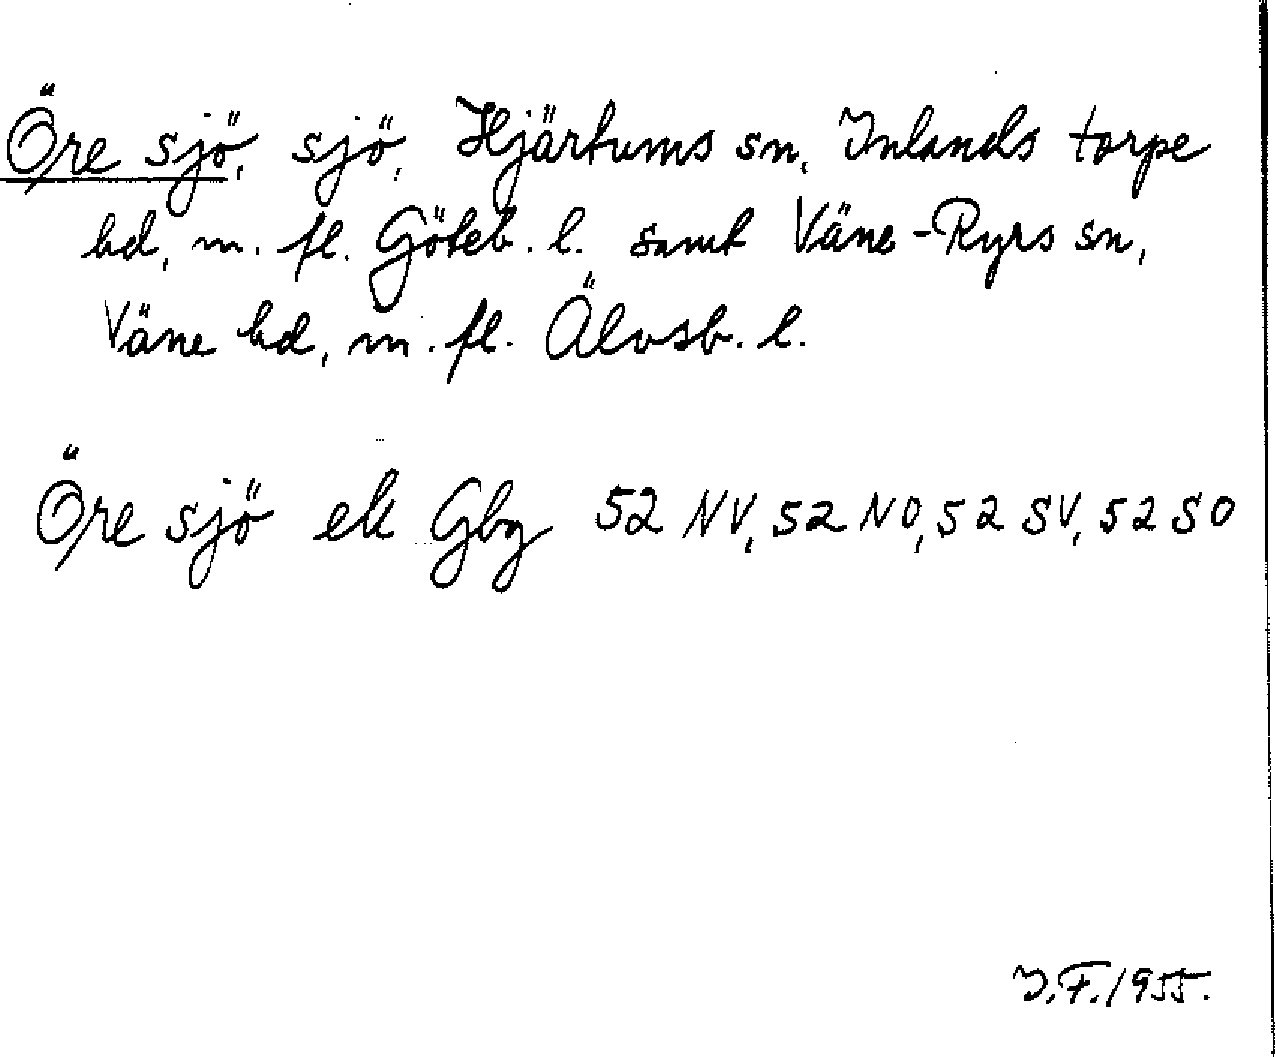 Öre sjö, sjö, Hjärtums sn, Inlands torpe
hd, m. fl. Göteb. l. samt Väne-Ryrs sn,
Väne hd, m. fl. Älvsb. l.
Öre sjö ek Gbg 52 NV, 52 NO, 52 SV, 52 SO
I.F. 1955.